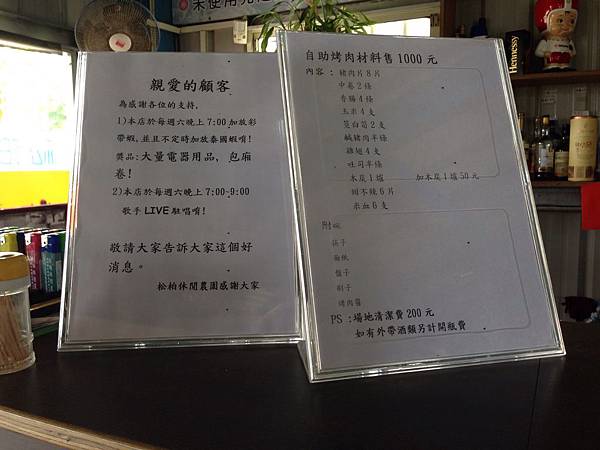 未使用完
親愛的顧客
為感謝各位的支持,
1)本店於每週六晚上7:00加放彩
帶蝦,並且不定時加放泰國蝦唷!
獎品:大量電器用品, 包廂
卷!
2)本店於每週六晚上7:00~9:00
歌手LIVE駐唱唷!
敬請大家告訴大家這個好
消息。
松柏休閒農園感謝大家
自助烤肉材料售1000元
內容：豬肉片8片
中卷2條
香腸4條
玉米4支
筊白筍2支
鹹豬肉半條
雞翅4支
吐司半條
木炭1爐 加木炭1爐50元
甜不辣6片
米血6支
附碗
筷子
面紙
盤子
刷子
烤肉醬
PS：場地清潔費200元
如有外帶酒類另計開瓶費
Hennessy